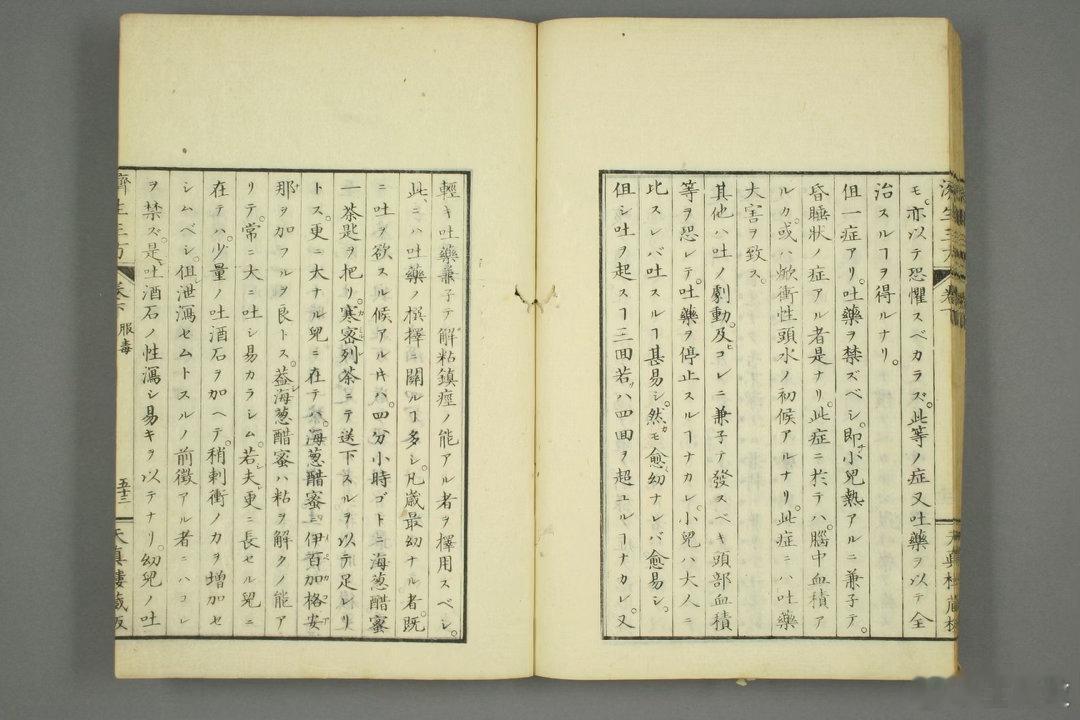 モ亦以テ恐懼スベカラズ。此等ノ症又吐藥ヲ以テ全
治スルヿヲ得ルナリ。
但一症アリ。吐藥ヲ禁ズベシ。即小兒熱アルニ兼子テ。
昏睡狀ノ症アル者是ナリ。此症ニ於テハ。腦中血積ア
ルカ。或ハ焮衝性頭水ノ初候アルナリ。此症ニハ吐藥
大害ヲ致ス。
其他ハ吐ノ劇動。及コレニ兼子テ發スベキ頭部血積
等ヲ恐レテ。吐藥ヲ停止スルヿナカレ。小兒ハ大人ニ
比スレバ吐スルヿ甚易シ。然モ愈幼ナレバ愈易シ。
但シ吐ヲ起スヿ三回若ハ四回ヲ超ユルヿナカレ。又
輕キ吐藥兼子テ解粘鎮痙ノ能アル者ヲ擇用スベシ。
此ニハ吐藥ノ撰擇ニ關ルヿ多シ。凡歳最幼ナル者。既
ニ吐ヲ欲スル候アルトキハ。四分小時ゴトニ海葱醋蜜
一茶匙ヲ把リ。寒密列茶ニテ送下スルヲ以テ足レリ
トス。更ニ大ナル兒ニ在テハ。海葱醋蜜ニ伊百加格安
那ヲ加フルヲ良トス。葢海葱醋蜜ハ粘ヲ解クノ能ア
リテ。常ニ大ニ吐シ易カラシム。若夫更ニ長セル兒ニ
在テハ。少量ノ吐酒石ヲ加ヘテ。稍刺衝ノカヲ增加セ
シムベシ。但泄瀉セムトスルノ前徴アル者ニハコレ
ヲ禁ズ。是吐酒石ノ性瀉シ易キヲ以テナリ。幼兒ノ吐
濟生三方 卷下 服毒 五十三 天眞樓藏版